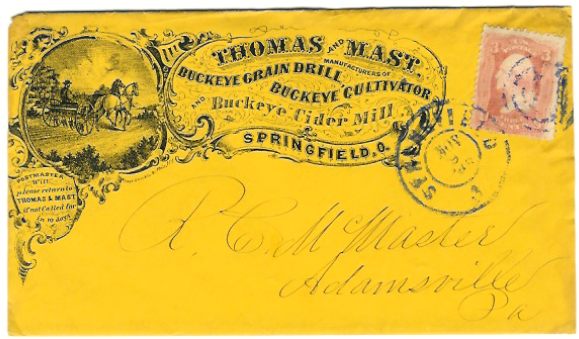 THOMAS AND MAST,
MANUFACTURERS OF
BUCKEYE GRAIN DRILL
BUCKEYE CULTIVATOR
AND Buckeye Cider Mill
SPRINGFIELD, O.
POSTMASTER
Will
please return to
THOMAS & MAST
if not called for
in 10 days
3 3
SPRINGFIELD
R. C. McMaster
Adamsville
Pa